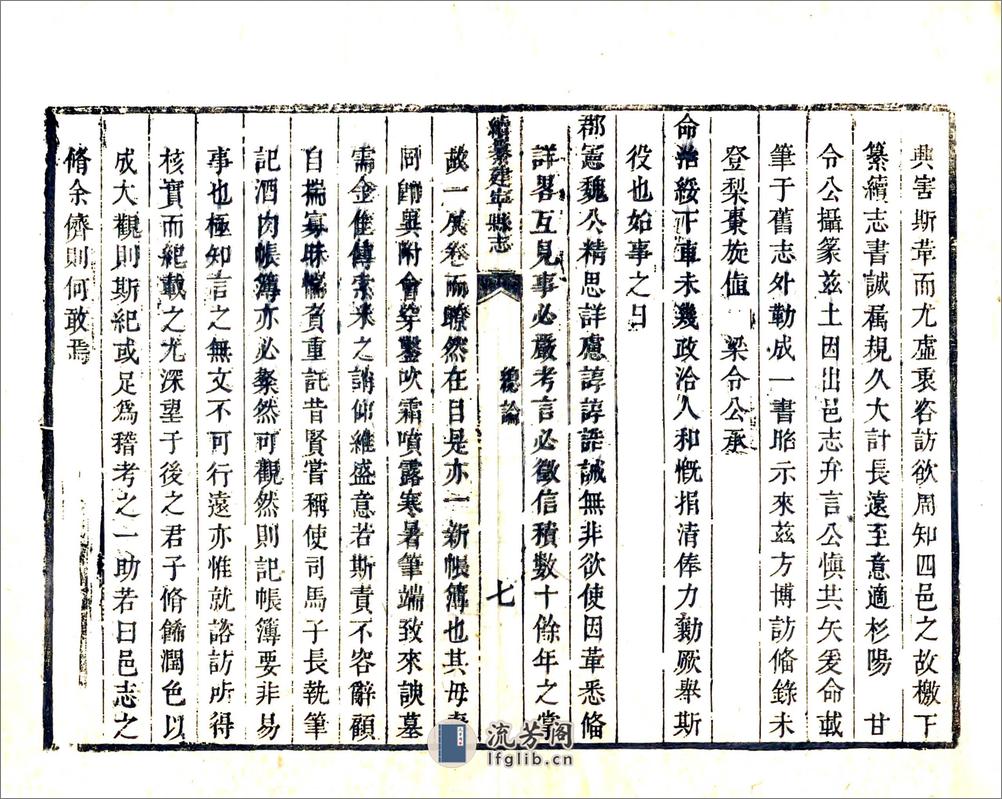 興害斯革而尤虛衷容訪欲周知四邑之故檄下
纂續志書誠属規久大計長遠至意適杉陽 甘
令公攝篆茲土因出邑志弁言公愼共矢爰命載
筆于舊志外勒成一書昭示來茲方博訪俻錄未
登梨棗旋值 梁令公承
命治綏下車未幾政治人和慨捐清俸力勷厥舉斯
役也始事之日
郡憲魏公精思詳慮諄諄語誠無非欲使因革悉俻
詳畧互見事必嚴考言必徵信積數十餘年之掌
續纂建寧縣志 總論 七
故一展卷而瞭然在目是亦一新帳簿也其毋事
同歸與附會穿鑿吹霜噴露寒暑筆端致來諛墓
需金佳傳索米之誚仰維盛意若斯責不容辭顧
自揣寡昧惴負重託昔賢嘗稱使司馬子長執筆
記酒肉帳簿亦必粲然可觀然則記帳簿要非易
事也極知言之無文不可行遠亦惟就諮訪所得
核實而紀載之尤深望于後之君子脩餙潤色以
成大觀則斯紀或足爲稽考之一助若曰邑志之
脩余儕則何敢焉
流芳阁
lfglib.cn